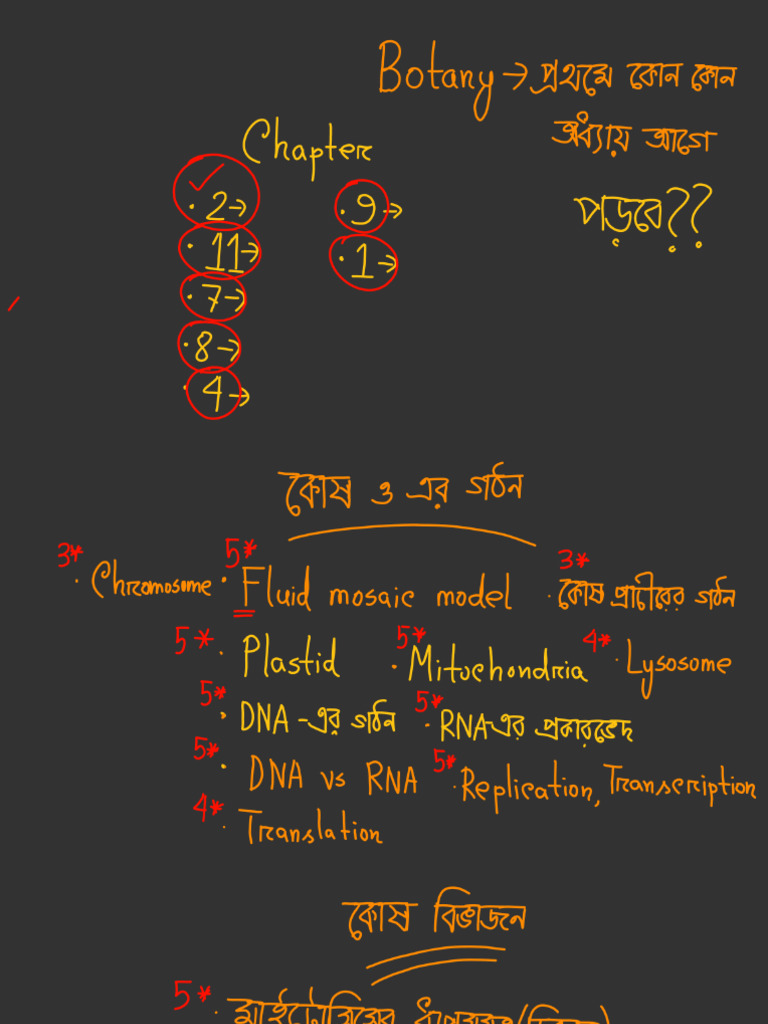 Botany → প্রথমে কোন কোন
অধ্যায় আগে
পড়বে??
Chapter
✓
• 2→
• 9→
• 11→
• 1→
• 7→
• 8→
• 4→
কোষ ও এর গঠন
3* • Chromosome 5* • Fluid mosaic model 3* • কোষ প্রাচীরের গঠন
5* • Plastid 5* • Mitochondria 4* • Lysosome
5* • DNA -এর গঠন 5* • RNA-এর প্রকারভেদ
5* • DNA vs RNA 5* • Replication, Transcription
4* • Translation
কোষ বিভাজন
5* • মাইটোসিসের